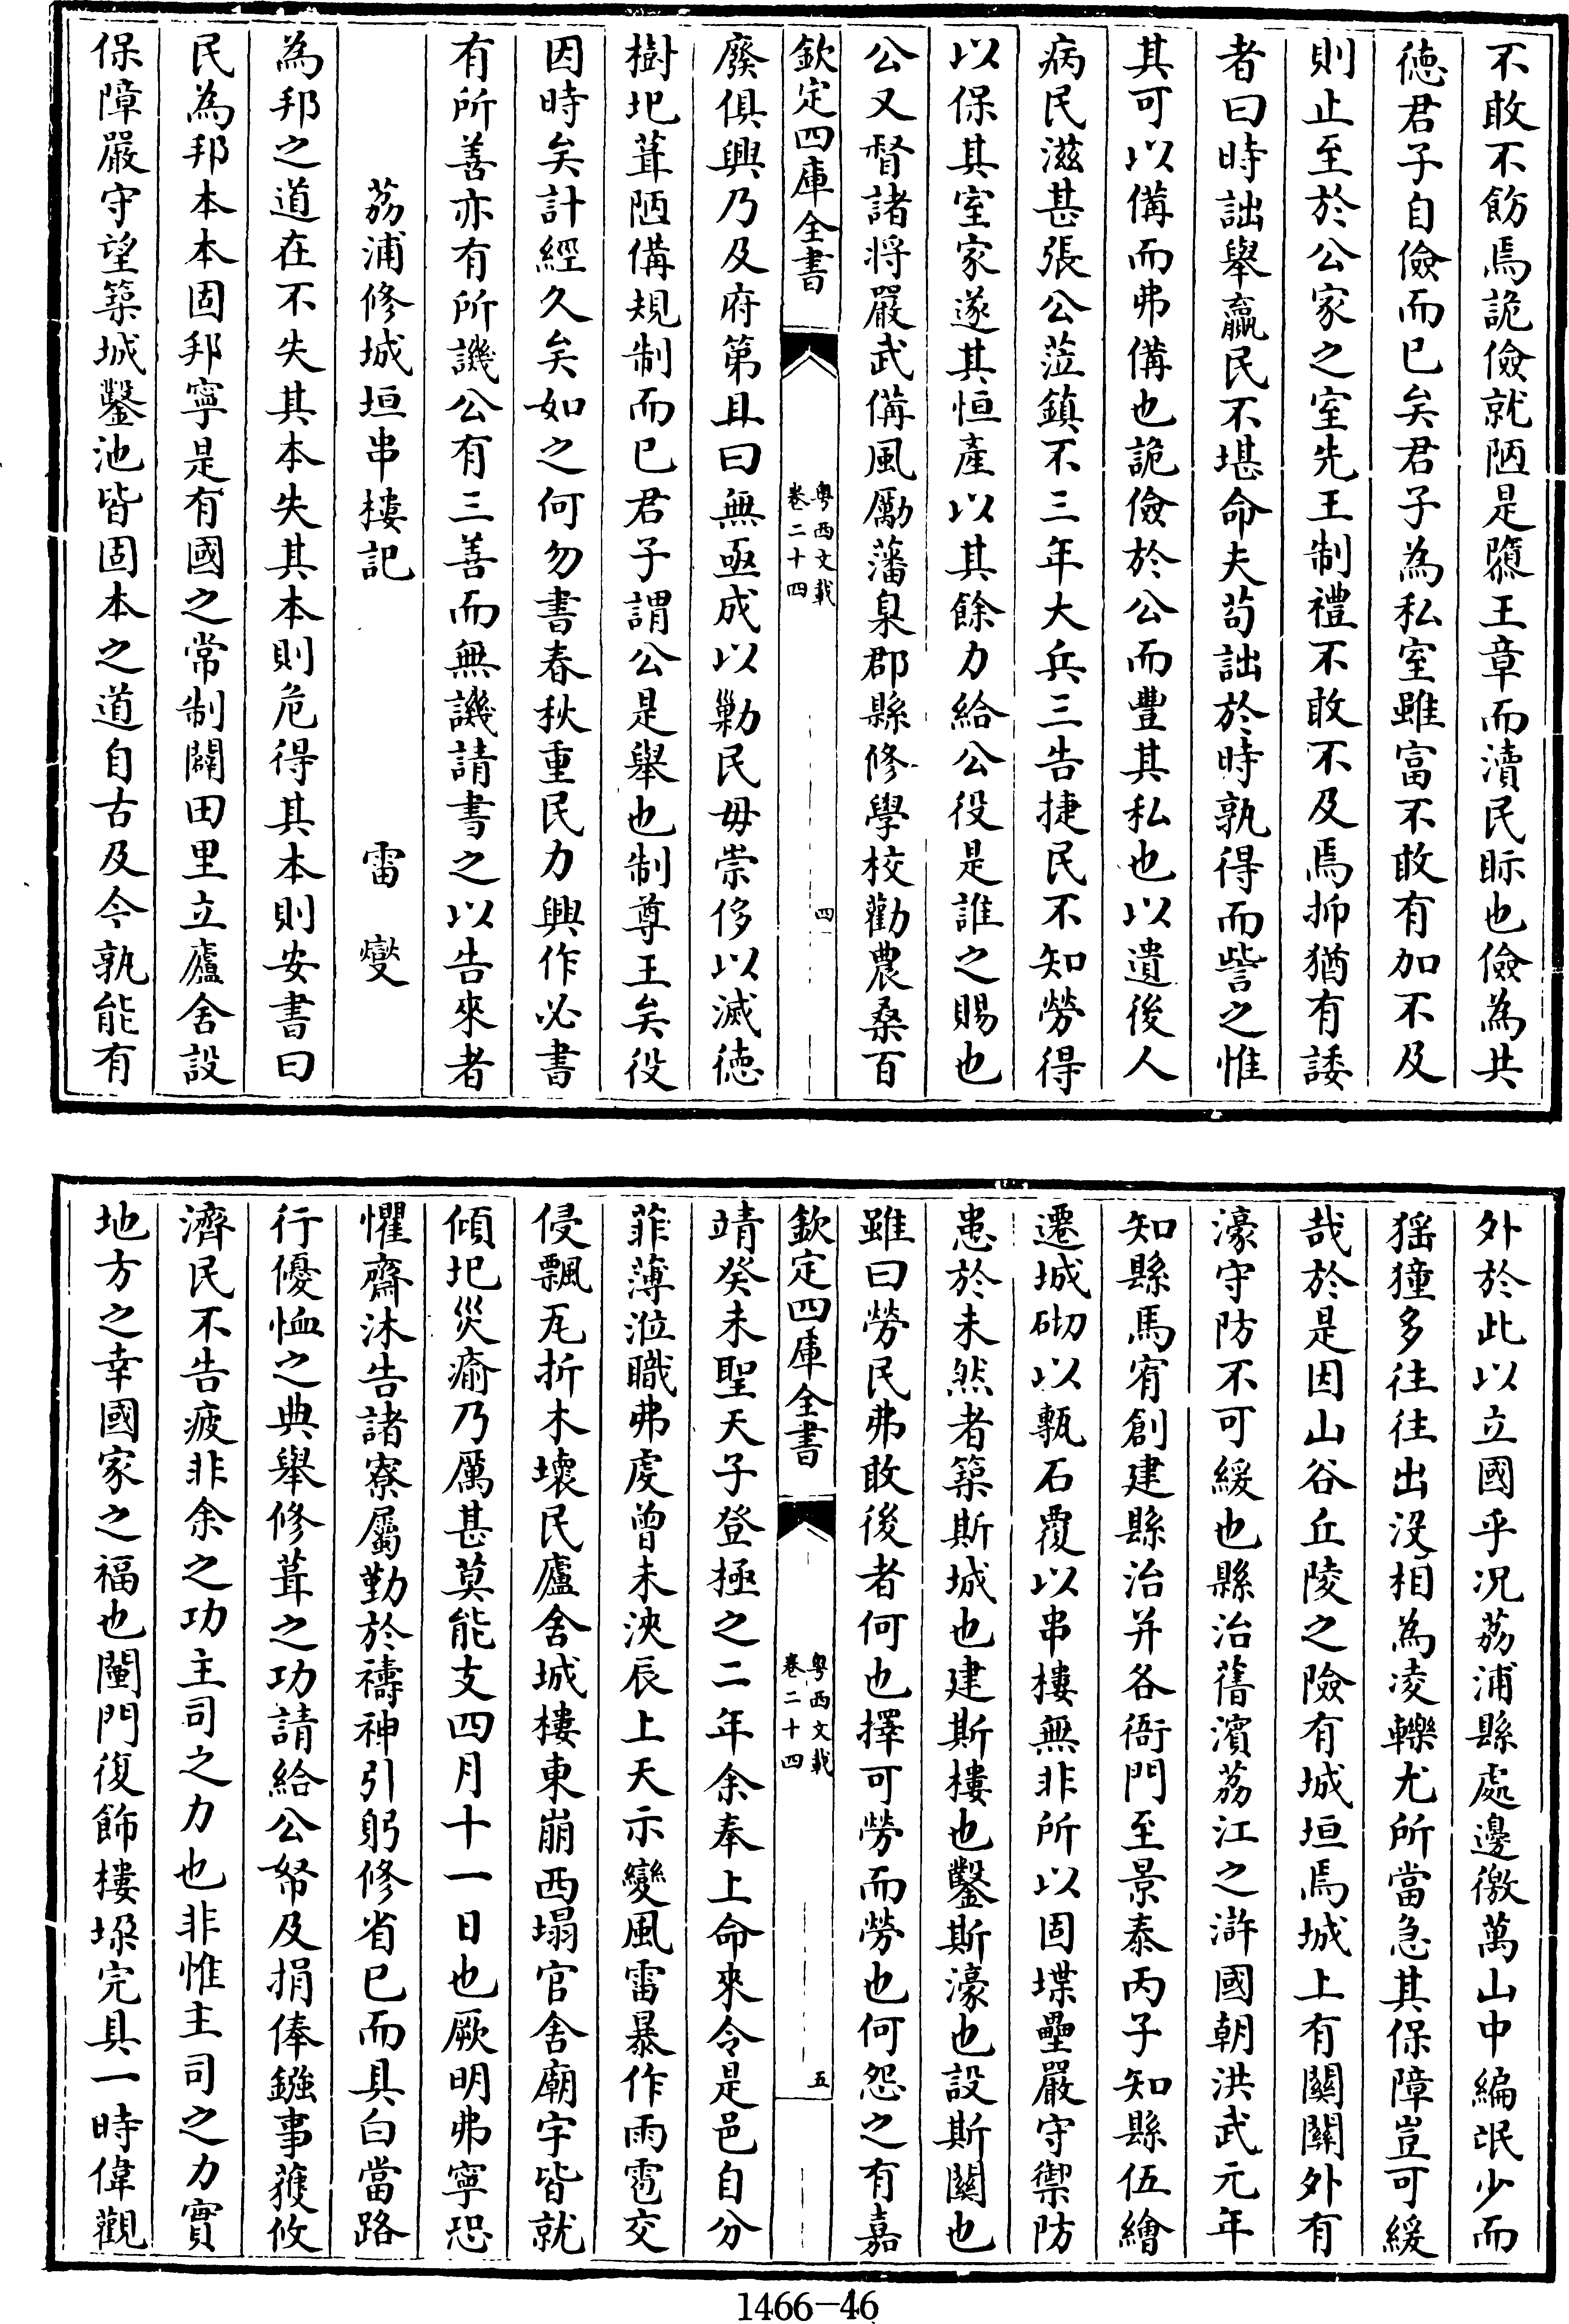 不敢不飭焉詭儉就陋是隳王章而瀆民眎也儉為共
徳君子自儉而已矣君子為私室雖富不敢有加不及
則止至於公家之室先王制禮不敢不及焉抑猶有諉
者曰時詘舉贏民不堪命夫苟詘於時孰得而訾之惟
其可以備而弗備也詭儉於公而豐其私也以遺後人
病民滋甚張公蒞鎮不三年大兵三告捷民不知勞得
以保其室家遂其恒產以其餘力給公役是誰之賜也
公又督諸將嚴武備風勵藩臬郡縣修學校勸農桑百
欽定四庫全書
粤西文載
卷二十四
四
廢俱興乃及府第且曰無亟成以勦民毋崇侈以滅徳
樹圯葺陋備規制而已君子謂公是舉也制尊王矣役
因時矣計經久矣如之何勿書春秋重民力興作必書
有所善亦有所譏公有三善而無譏請書之以告來者
荔浦修城垣串樓記　雷燮
為邦之道在不失其本失其本則危得其本則安書曰
民為邦本本固邦寧是有國之常制闢田里立廬舍設
保障嚴守望築城鑿池皆固本之道自古及今孰能有
外於此以立國乎况荔浦縣處邊徼萬山中編氓少而
猺獞多往往出沒相為凌轢尤所當急其保障豈可緩
哉於是因山谷丘陵之險有城垣焉城上有闗闗外有
濠守防不可緩也縣治舊濱荔江之滸國朝洪武元年
知縣馬宥創建縣治并各衙門至景泰丙子知縣伍繪
遷城砌以甎石覆以串樓無非所以固堞壘嚴守禦防
患於未然者築斯城也建斯樓也鑿斯濠也設斯闗也
雖曰勞民弗敢後者何也擇可勞而勞也何怨之有嘉
欽定四庫全書
粤西文載
卷二十四
五
靖癸未聖天子登極之二年余奉上命來令是邑自分
菲薄涖職弗虔曾未浹辰上天示變風雷暴作雨雹交
侵飄瓦折木壞民廬舍城樓東崩西塌官舍廟宇皆就
傾圯災瘉乃厲甚莫能支四月十一日也厥明弗寧恐
懼齋沐告諸寮屬勤於禱神引躬修省已而具白當路
行優恤之典舉修葺之功請給公帑及捐俸鏹事獲攸
濟民不告疲非余之功主司之力也非惟主司之力實
地方之幸國家之福也闉門復飾樓垛完具一時偉觀
1466-46